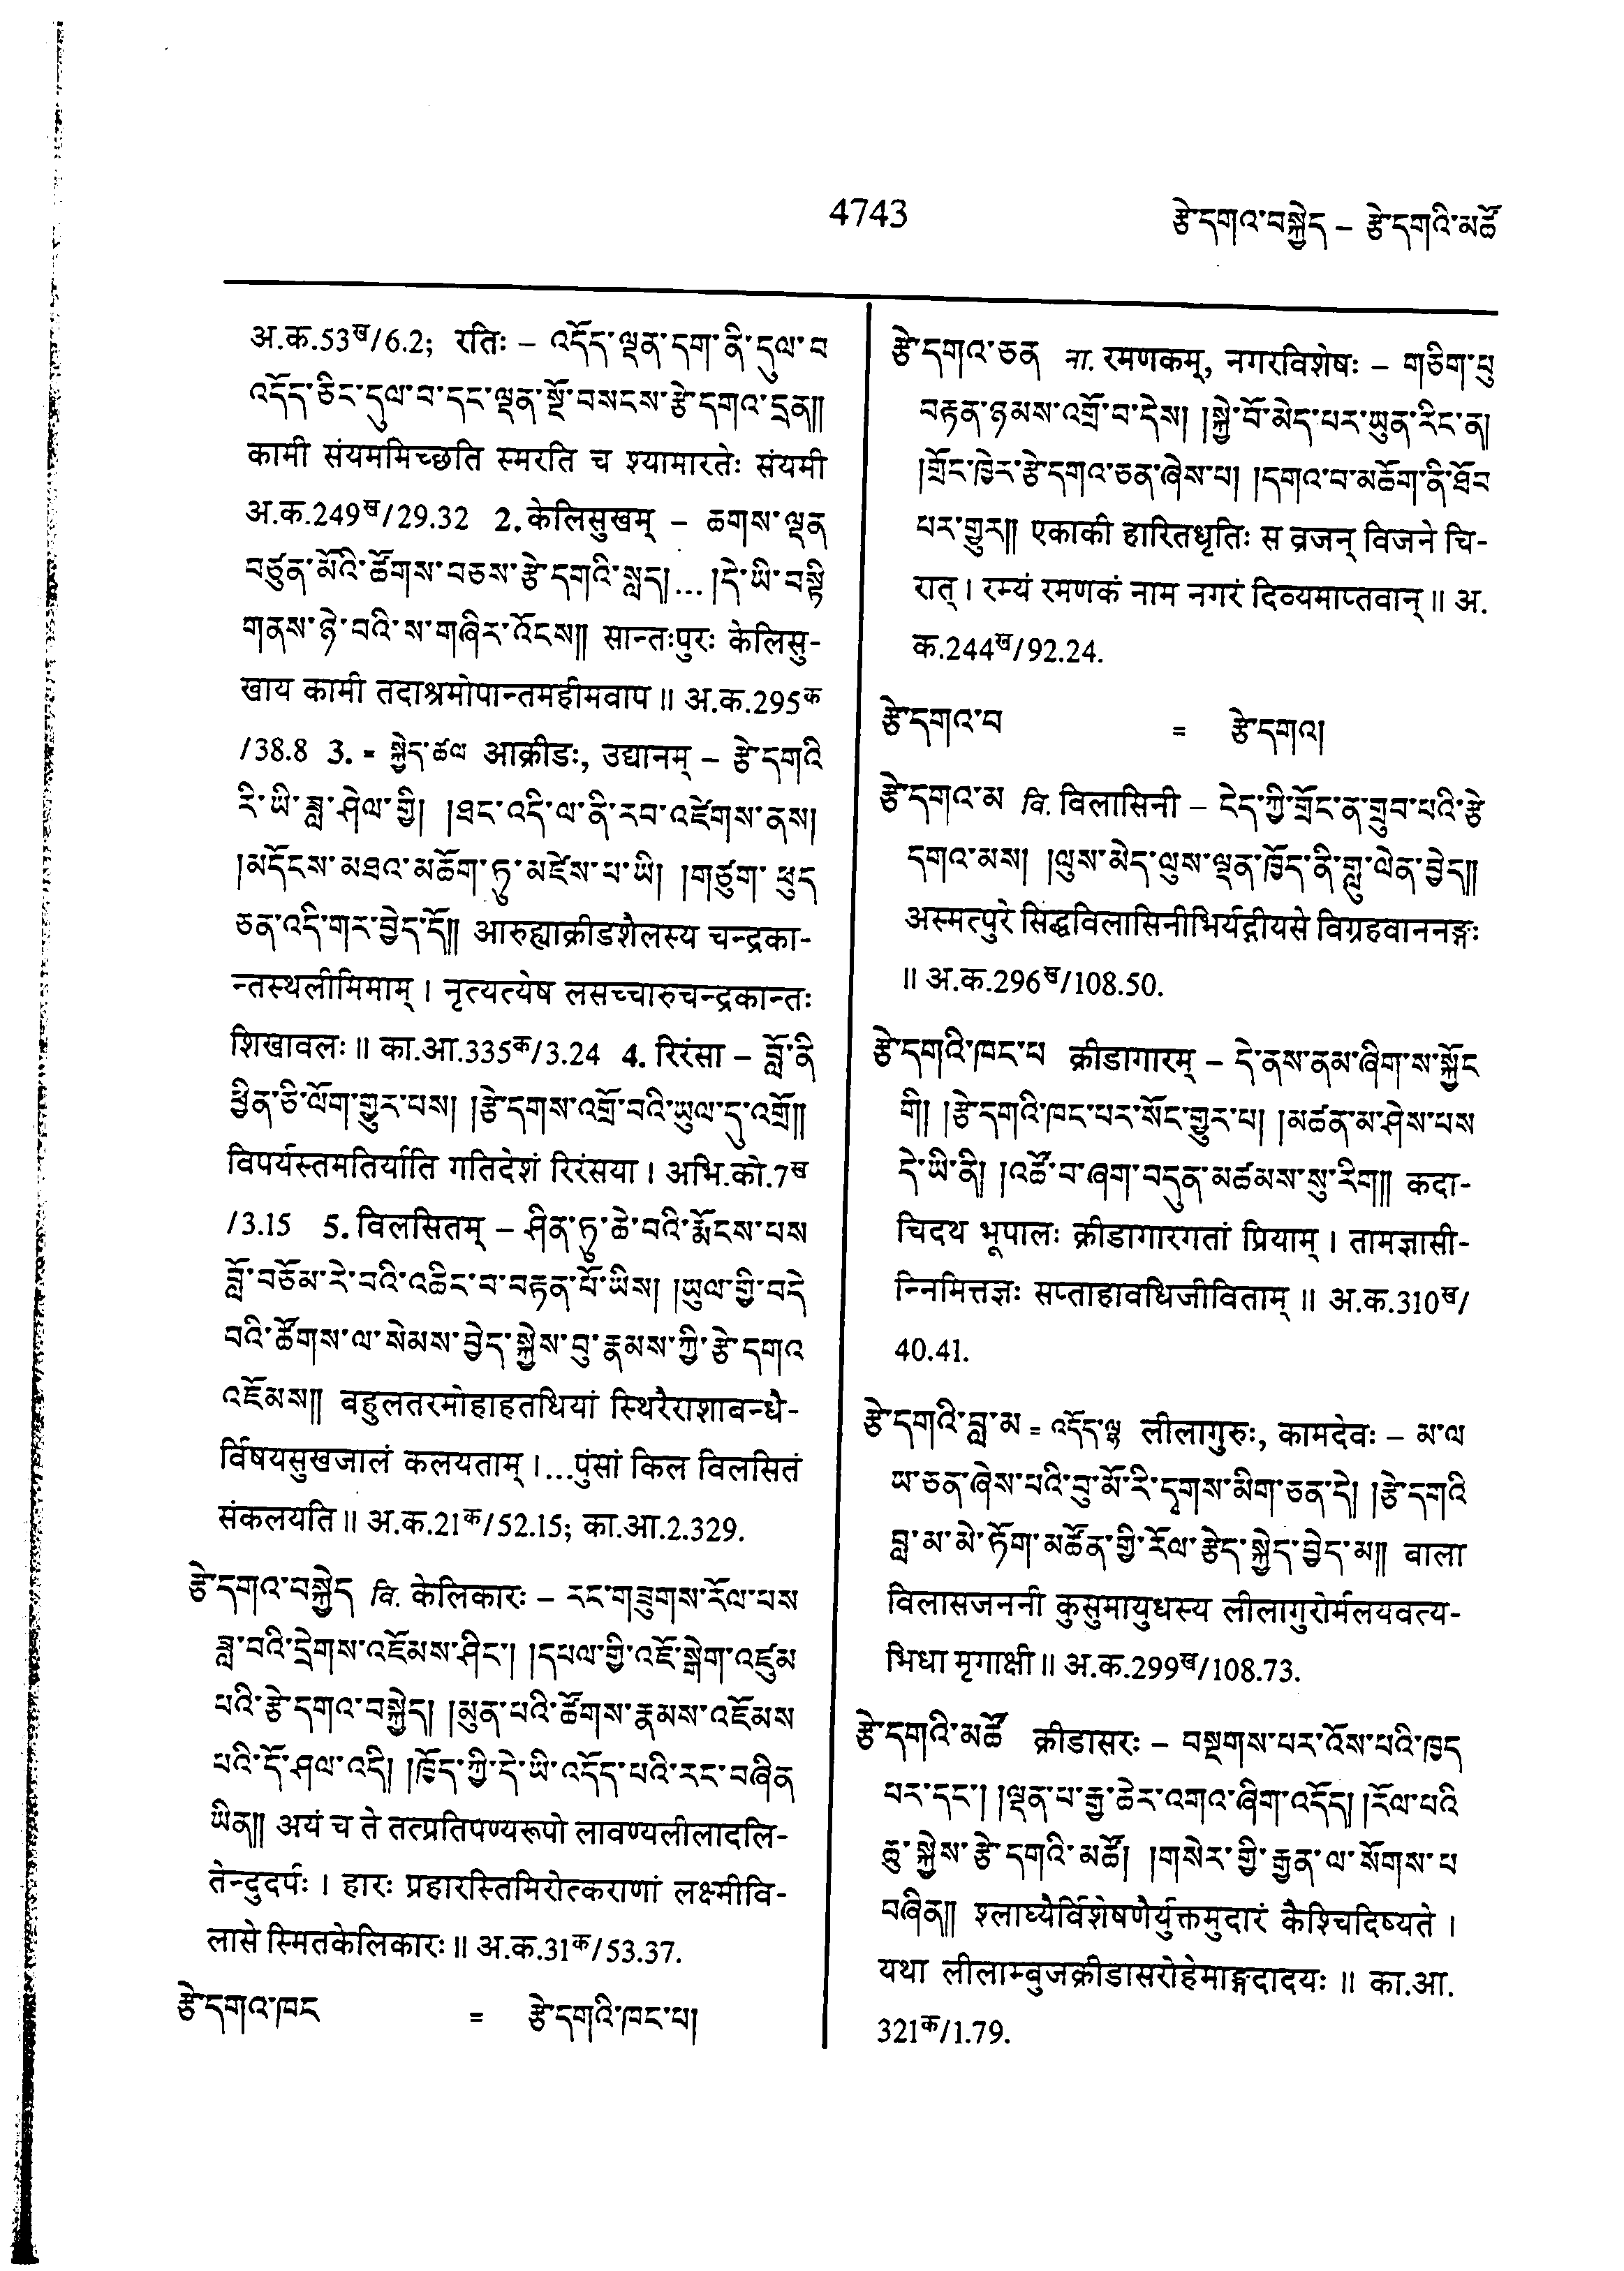 4743
རྩེ་དགའ་བསྐྱེད – རྩེ་དགའི་མཚོ
अ.क.53ख/6.2; रतिः – འདོད་ལྡན་དག་ནི་དུལ་བ
འདོད་ཅིང་དུལ་བ་དང་ལྡན་སྔོ་བསངས་རྩེ་དགའ་དྲན༎
कामी संयममिच्छति स्मरति च श्यामारतेः संयमी
अ.क.249ख/29.32 2. केलिसुखम् – ཆགས་ལྡན
བཙུན་མོའི་ཚོགས་བཅས་རྩེ་དགའི་སླད།... །དེ་ཡི་བསྟི
གནས་ཉེ་བའི་ས་གཞིར་འོངས༎ सान्तःपुरः केलिसु-
खाय कामी तदाश्रमोपान्तमहीमवाप ॥ अ.क.295क
/38.8 3. = སྐྱེད་ཚལ आक्रीडः, उद्यानम् – རྩེ་དགའི
རི་ཡི་ཟླ་ཤེལ་གྱི། །ཐང་འདི་ལ་ནི་རབ་འཛེགས་ནས།
།མདོངས་མཐའ་མཆོག་ཏུ་མཛེས་པ་ཡི། །གཙུག་ཕུད
ཅན་འདི་གར་བྱེད་དོ༎ आरुह्याक्रीडशैलस्य चन्द्रका-
न्तस्थलीमिमाम् । नृत्यत्येष लसच्चारुचन्द्रकान्तः
शिखावलः ॥ का.आ.335क/3.24 4. रिरंसा – བློ་ནི
ཕྱིན་ཅི་ལོག་གྱུར་པས། །རྩེ་དགས་འགྲོ་བའི་ཡུལ་དུ་འགྲོ༎
विपर्यस्तमतिर्याति गतिदेशं रिरंसया । अभि.को.7ख
/3.15 5. विलसितम् – ཤིན་ཏུ་ཆེ་བའི་རྨོངས་པས
བློ་བཅོམ་རེ་བའི་འཆིང་བ་བརྟན་པོ་ཡིས། །ཡུལ་གྱི་བདེ
བའི་ཚོགས་ལ་སེམས་བྱེད་སྐྱེས་བུ་རྣམས་ཀྱི་རྩེ་དགའ
འཇོམས༎ बहुलतरमोहाहतधियां स्थिरैराशाबन्धै-
र्विषयसुखजालं कलयताम् ।...पुंसां किल विलसितं
संकलयति ॥ अ.क.21क/52.15; का.आ.2.329.
རྩེ་དགའ་བསྐྱེད वि. केलिकारः – རང་གཟུགས་རོལ་པས
ཟླ་བའི་དྲེགས་འཇོམས་ཤིང་། །དཔལ་གྱི་འཇོ་སྒེག་འཛུམ
པའི་རྩེ་དགའ་བསྐྱེད། །མུན་པའི་ཚོགས་རྣམས་འཇོམས
པའི་དོ་ཤལ་འདི། །ཁྱོད་ཀྱི་དེ་ཡི་འདོད་པའི་རང་བཞིན
ཡིན༎ अयं च ते तत्प्रतिपण्यरूपो लावण्यलीलादलि-
तेन्दुदर्पः । हारः प्रहारस्तिमिरोत्कराणां लक्ष्मीवि-
लासे स्मितकेलिकारः ॥ अ.क.31क/53.37.
རྩེ་དགའ་ཁང = རྩེ་དགའི་ཁང་པ།
རྩེ་དགའ་ཅན ना. रमणकम्, नगरविशेषः – གཅིག་པུ
བརྟན་ཉམས་འགྲོ་བ་དེས། །སྐྱེ་བོ་མེད་པར་ཡུན་རིང་ན།
།གྲོང་ཁྱེར་རྩེ་དགའ་ཅན་ཞེས་པ། །དགའ་བ་མཆོག་ནི་ཐོབ
པར་གྱུར༎ एकाकी हारितधृतिः स व्रजन् विजने चि-
रात् । रम्यं रमणकं नाम नगरं दिव्यमाप्तवान् ॥ अ.
क.244ख/92.24.
རྩེ་དགའ་བ = རྩེ་དགའ།
རྩེ་དགའ་མ वि. विलासिनी – ངེད་ཀྱི་གྲོང་ན་གྲུབ་པའི་རྩེ
དགའ་མས། །ལུས་མེད་ལུས་ལྡན་ཁྱོད་ནི་གླུ་ལེན་བྱེད༎
अस्मत्पुरे सिद्धविलासिनीभिर्यद्गीयसे विग्रहवाननङ्गः
॥ अ.क.296ख/108.50.
རྩེ་དགའི་ཁང་པ क्रीडागारम् – དེ་ནས་ནམ་ཞིག་ས་སྐྱོང
གི། །རྩེ་དགའི་ཁང་པར་སོང་གྱུར་པ། །མཚན་མ་ཤེས་པས
དེ་ཡི་ནི། །འཚོ་བ་ཞག་བདུན་མཚམས་སུ་རིག༎ कदा-
चिदथ भूपालः क्रीडागारगतां प्रियाम् । तामज्ञासी-
न्निमित्तज्ञः सप्ताहावधिजीविताम् ॥ अ.क.310ख/
40.41.
རྩེ་དགའི་བླ་མ = འདོད་ལྷ लीलागुरुः, कामदेवः – མ་ལ
ཡ་ཅན་ཞེས་པའི་བུ་མོ་རི་དྭགས་མིག་ཅན་དེ། །རྩེ་དགའི
བླ་མ་མེ་ཏོག་མཚོན་གྱི་རོལ་རྩེད་སྐྱེད་བྱེད་མ༎ बाला
विलासजननी कुसुमायुधस्य लीलागुरोर्मलयवत्य-
भिधा मृगाक्षी ॥ अ.क.299ख/108.73.
རྩེ་དགའི་མཚོ क्रीडासरः – བསྔགས་པར་འོས་པའི་ཁྱད
པར་དང་། །ལྡན་པ་རྒྱ་ཆེར་འགའ་ཞིག་འདོད། །རོལ་པའི
ཆུ་སྐྱེས་རྩེ་དགའི་མཚོ། །གསེར་གྱི་རྒྱན་ལ་སོགས་པ
བཞིན༎ श्लाघ्यैर्विशेषणैर्युक्तमुदारं कैश्चिदिष्यते ।
यथा लीलाम्बुजक्रीडासरोहेमाङ्गदादयः ॥ का.आ.
321क/1.79.